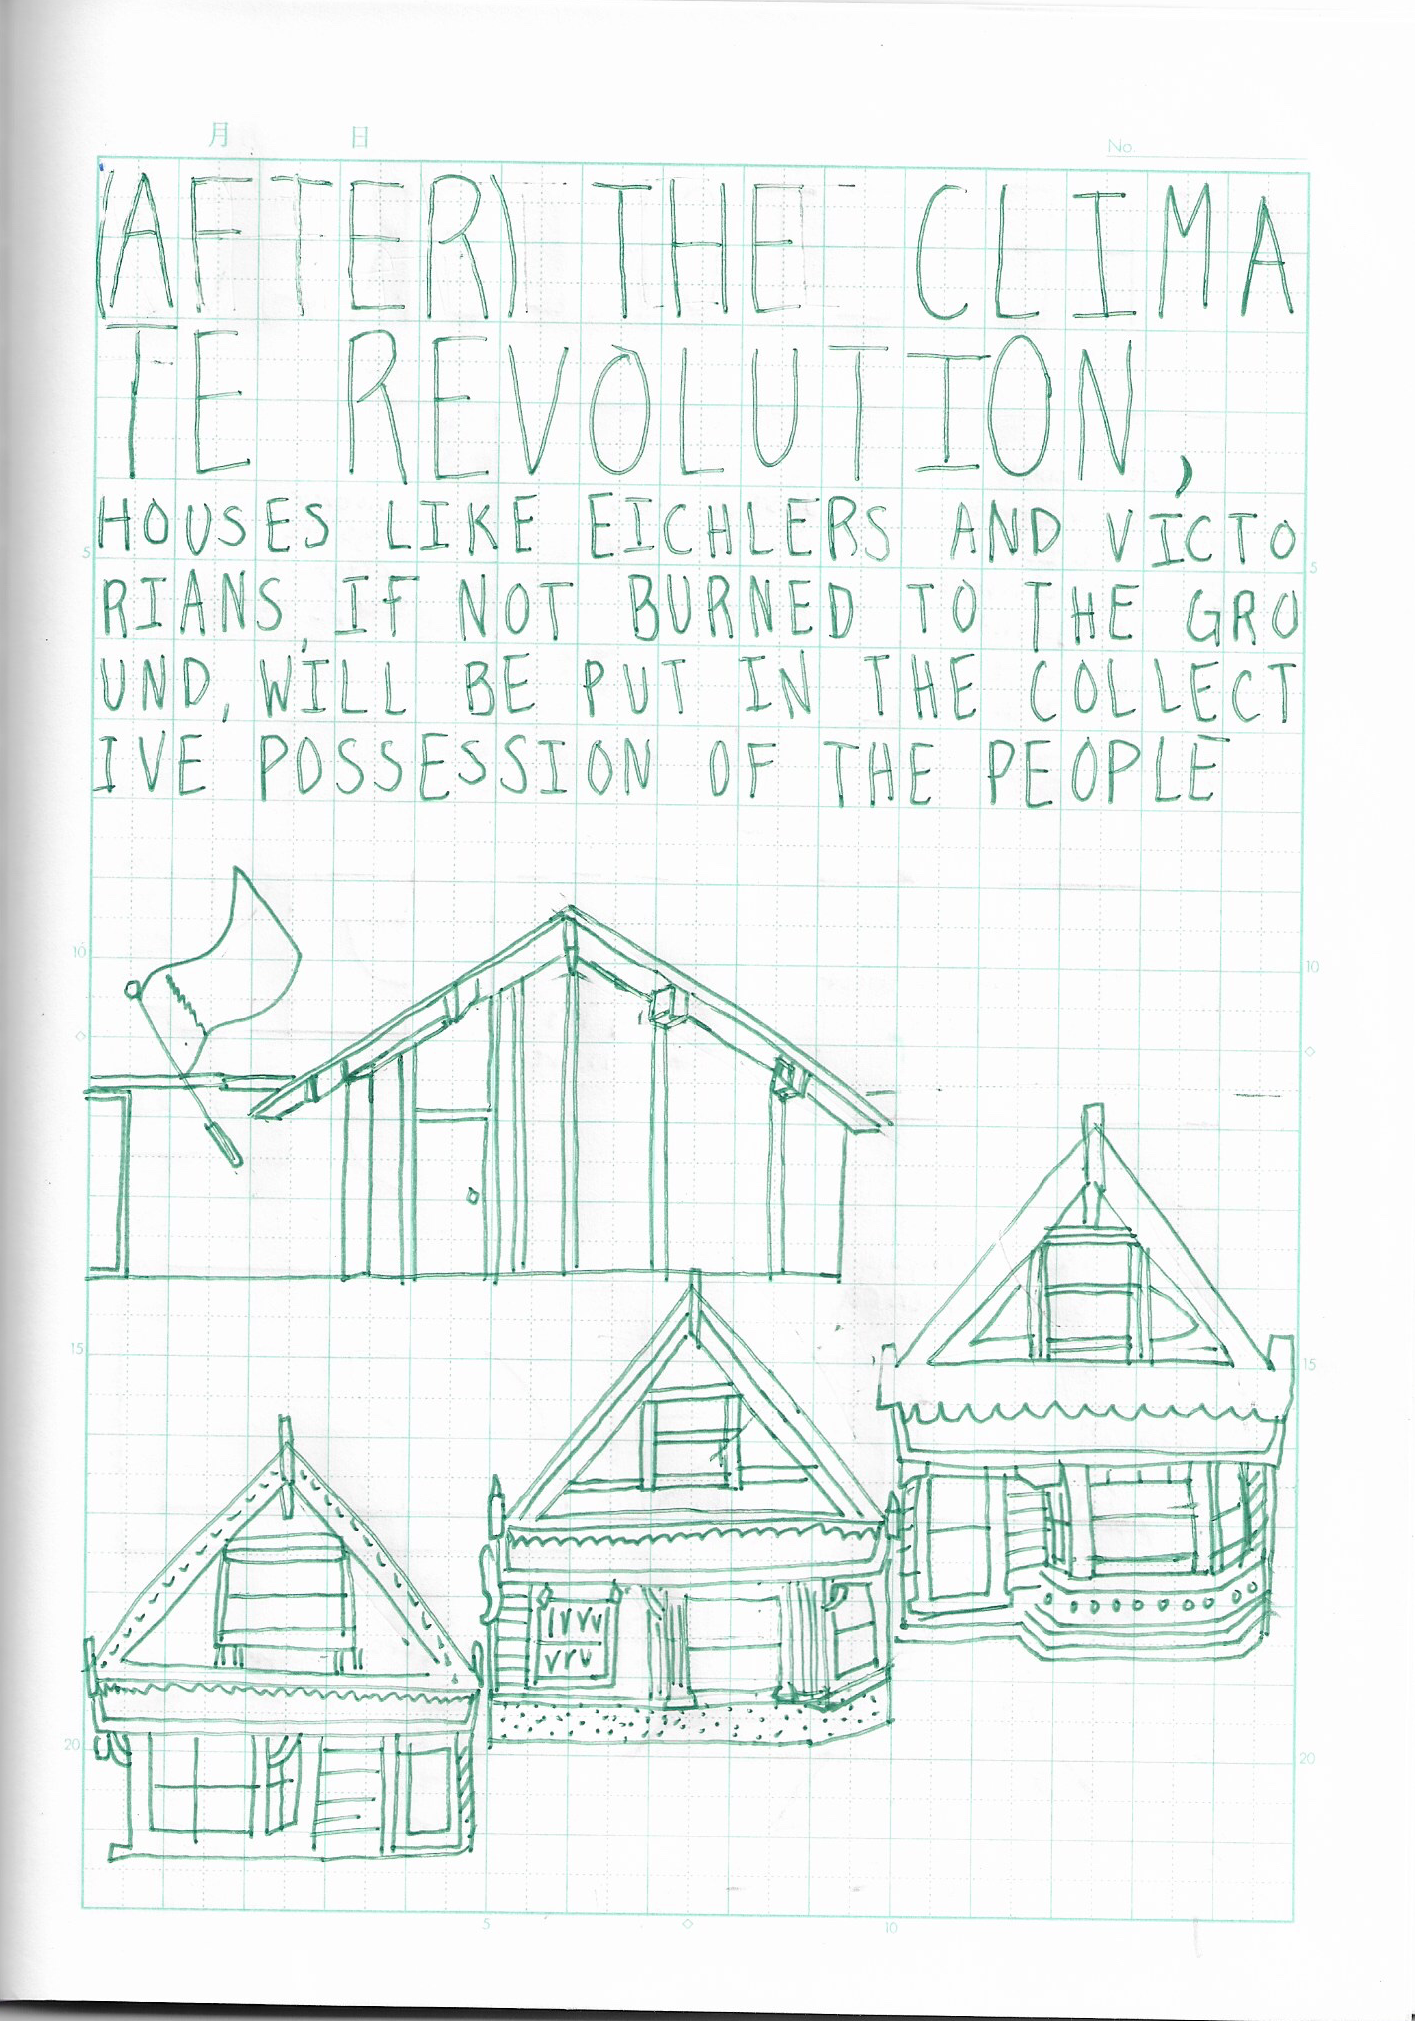 月 日 No.
(AFTER) THE CLIMA
TE REVOLUTION,
HOUSES LIKE EICHLERS AND VICTO
5 5
RIANS, IF NOT BURNED TO THE GRO
UND, WILL BE PUT IN THE COLLECT
IVE POSSESSION OF THE PEOPLE
10 10
15 15
20 20
5 10